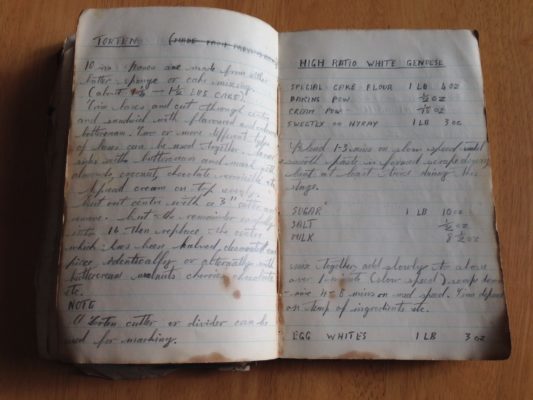 TORTEN (MADE FROM
10 ins bases are made from either
butter sponge or cake mixing
(about 1¼ - 1½ LBS CAKE).
Trim bases and cut through centre
and sandwich with flavoured and
buttercream. Two or more different types
of bases can be used together
sides with buttercream and mask with
almonds, coconut, chocolate vermicelli etc
Spread cream on top
cut out centre with a 3" cutter and
remove. Cut the remainder
into 16 then replace the centre
which has been halved, decorate
piece identically or alternately with
buttercream walnuts cherries chocolate
etc.
NOTE
A Torten cutter or divider can be
used for marking.
HIGH RATIO WHITE GENOESE
SPECIAL CAKE FLOUR 1 LB 4 OZ
BAKING POW ½ OZ
CREAM POW OZ
SWEETEX OR HYMAY 1 LB 3 OZ
Blend 1-3 mins on slow speed until
smooth paste is formed scrape down
at least twice during this
stage.
SUGAR 1 LB 10 OZ
SALT ½ OZ
MILK 8 ½ OZ
mix together add slowly to above
over 1 minute (slow speed) scrape down
mix 4-5 mins on med speed. Time depends
on temp of ingredients etc.
EGG WHITES 1 LB 3 OZ